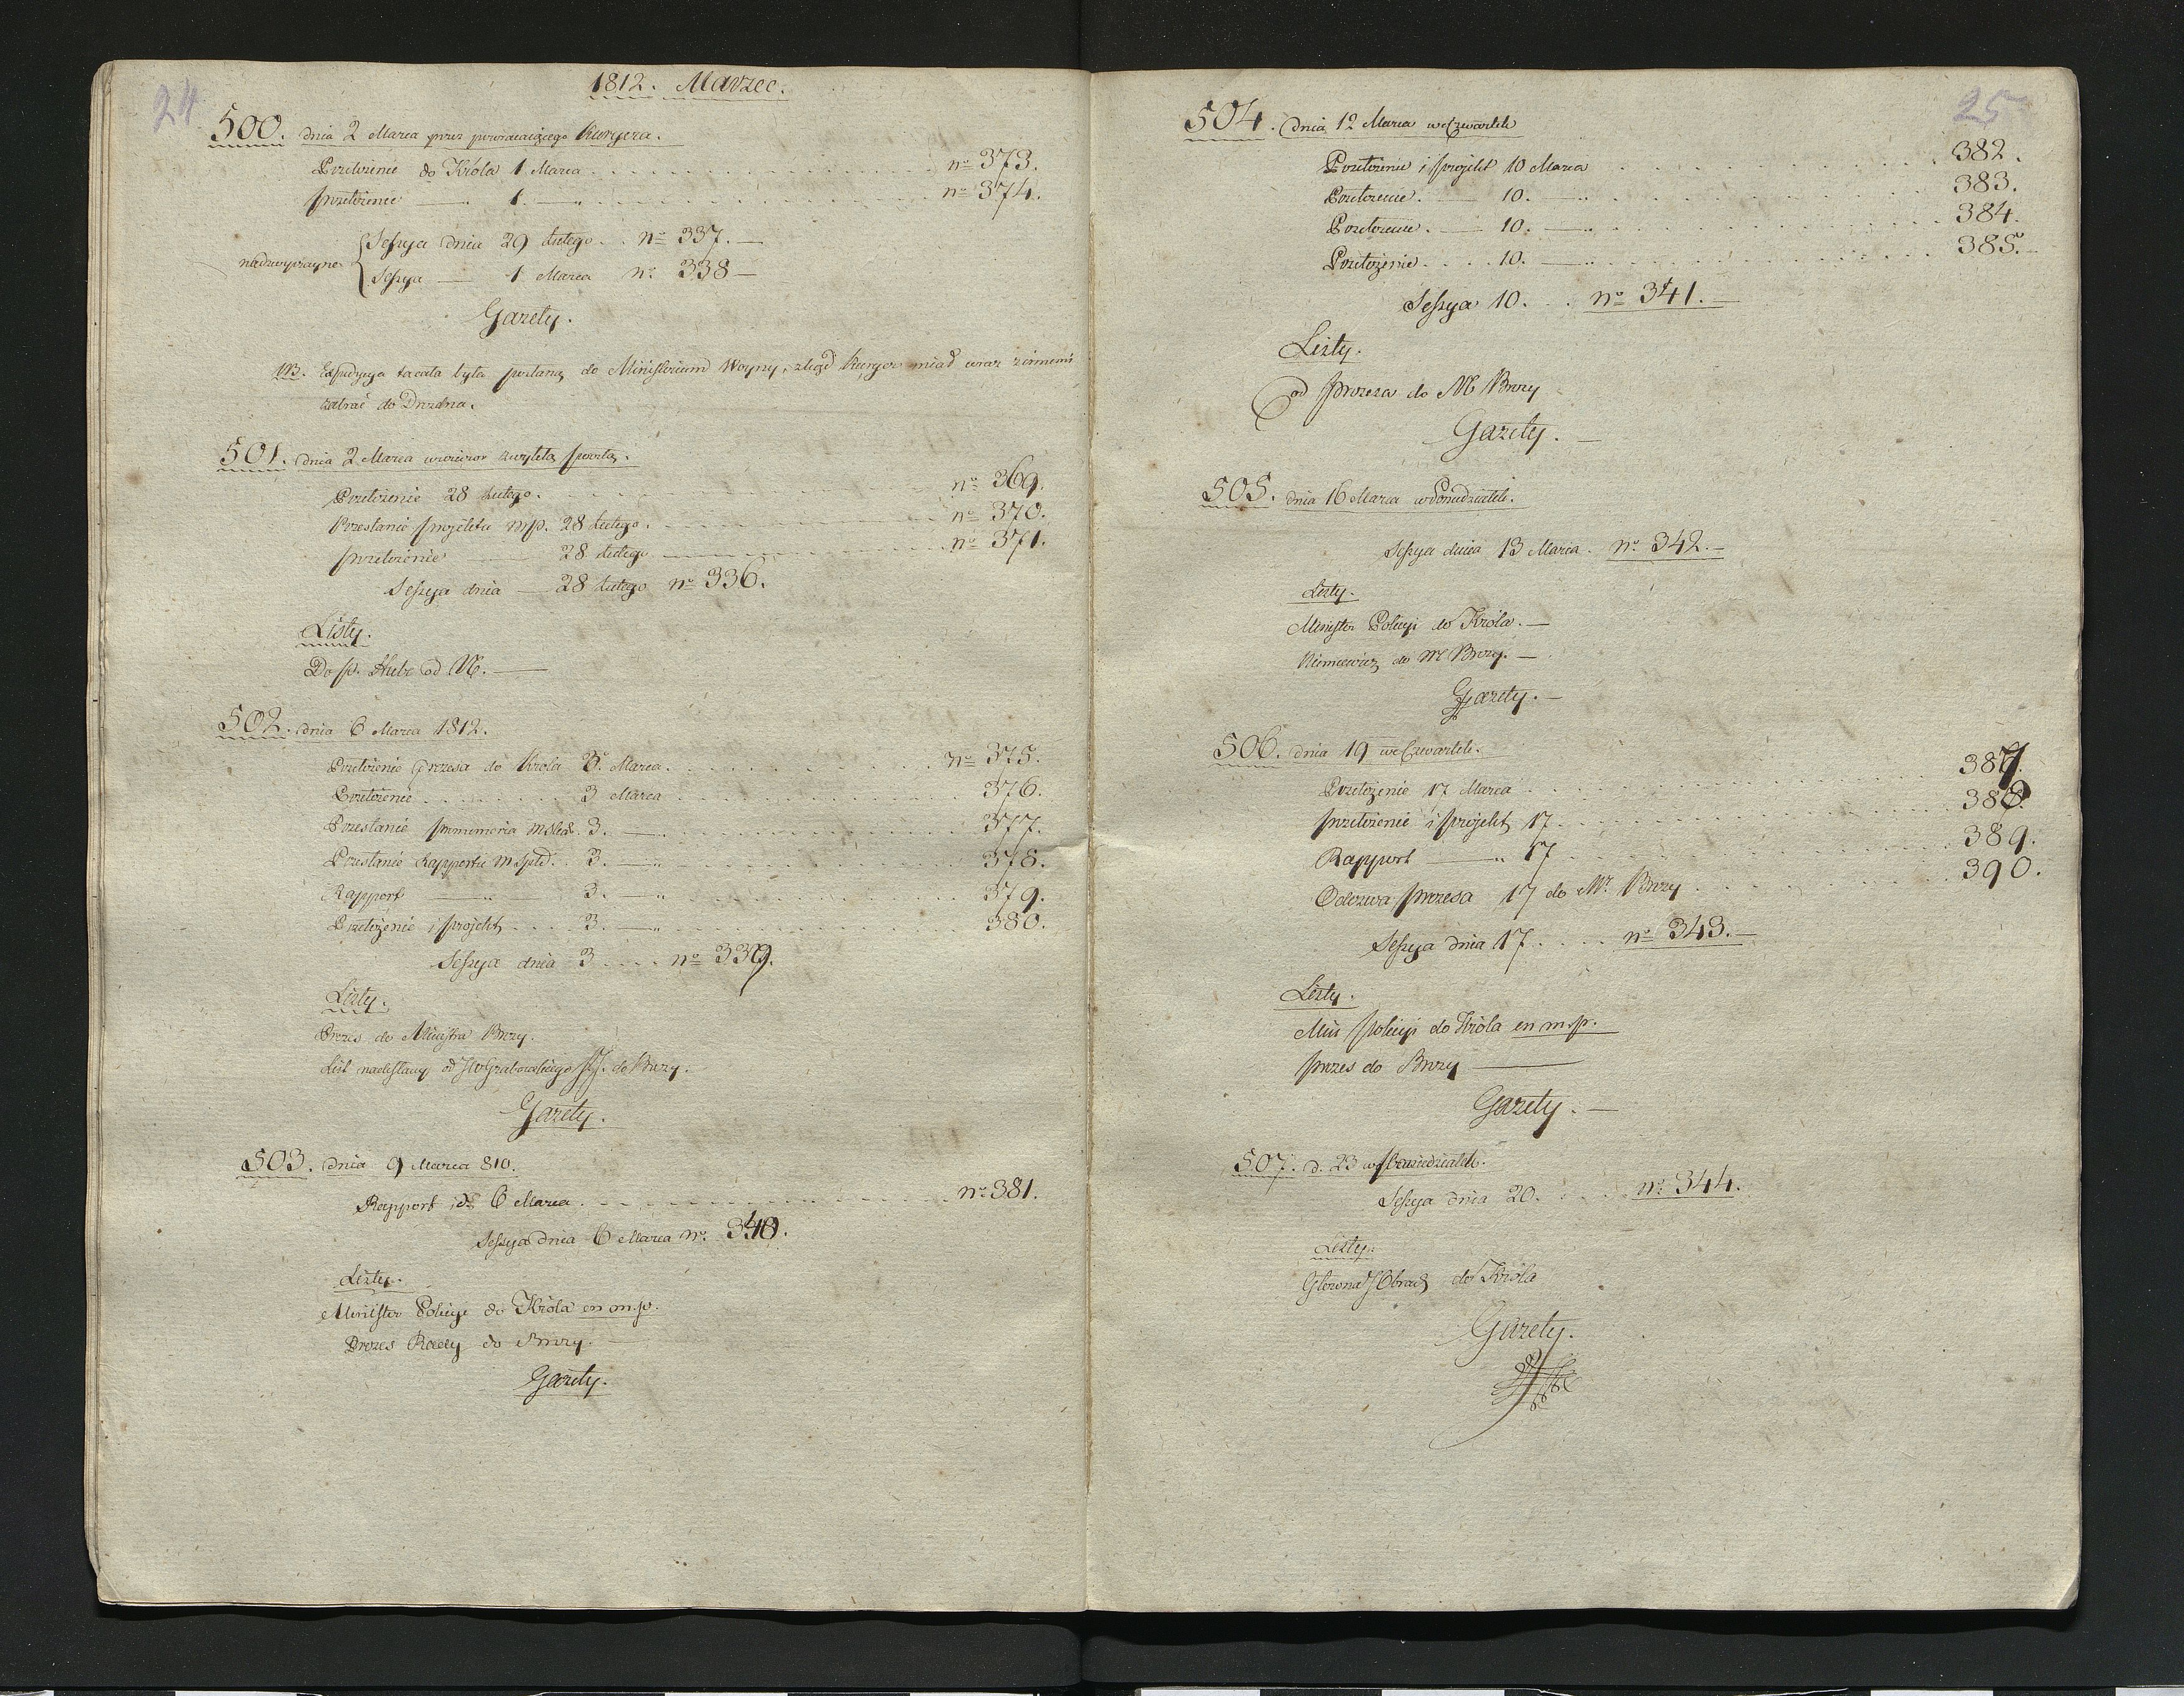 24
1812. Marzec.
500. dnia 2 Marca przez powracaiącego Kuryera.
Przełożenie do Króla 1 Marca nº 373.
przełożenie — 1. — nº 374.
Sessya dnia 29 Lutego . . Nº 337. —
nadzwyczayne
Sessya — 1 Marca Nº 338 —
Gazety.
NB. Expedycya ta cała była posłana do Ministerium Woyny, zkąd Kuryer miał wraz z innemi
zabrać do Drezna.
501. dnia 2 Marca wieczor zwykłą pocztą.
Przełożenie 28 Lutego. nº 369.
Przesłanie projektu m.p. 28 Lutego. nº 370.
przełożenie — 28 Lutego nº 371.
Sessya dnia — 28 Lutego nº 336.
Listy.
Do p. Hube od M. —
502. dnia 6 Marca 1812.
Przełożenie Prezesa do Króla 3. Marca. Nº 375.
Przełożenie 3 Marca 376.
Przesłanie promemoria 3. — 377.
Przesłanie Rapportu 3. — 378.
Rapport — 3. — 379.
Przełożenie i projekt 3. — 380.
Sessya dnia 3 . . . . nº 339.
Listy.
Prezes do Ministra Brezy.
List nadesłany od Grabowskiego do Brezy.
Gazety.
503. dnia 9 Marca 810.
Rapport id 6 Marca. nº 381.
Sessya dnia 6 Marca Nº. 340.
Listy.
Minister Policyi do Króla en m.p.
Prezes Rady do Brezy. —
Gazety.
25
504. dnia 12 Marca we Czwartek
Przełożenie i projekt 10 Marca 382.
Przełożenie. — 10. — 383.
Przełożenie. — 10. — 384.
Przełożenie . . . . 10. — 385.
Sessya 10. . . nº 341. —
Listy.
od prezesa do M Brezy
Gazety. —
505. dnia 16 Marca w Poniedziałek.
Sessya dnia 13 Marca. nº 342. —
Listy.
Minister Policyi do Króla. —
Niemcewicz do Mr Brezy. —
Gazety. —
506. dnia 19 we Czwartek.
Przełożenie 17 Marca 387.
przełożenie i projekt 17 388.
Rapport — 17 389.
Odezwa prezesa 17 do Mr. Brezy 390.
Sessya dnia 17. . . . . nº 343. —
Listy.
Min policyi do Króla en m.p.
prezes do Brezy —
Gazety. —
507. d. 23 w poniedziałek.
Sessya dnia 20. . . . nº 344.
Listy.
Główna Obrad do Króla
Gazety.